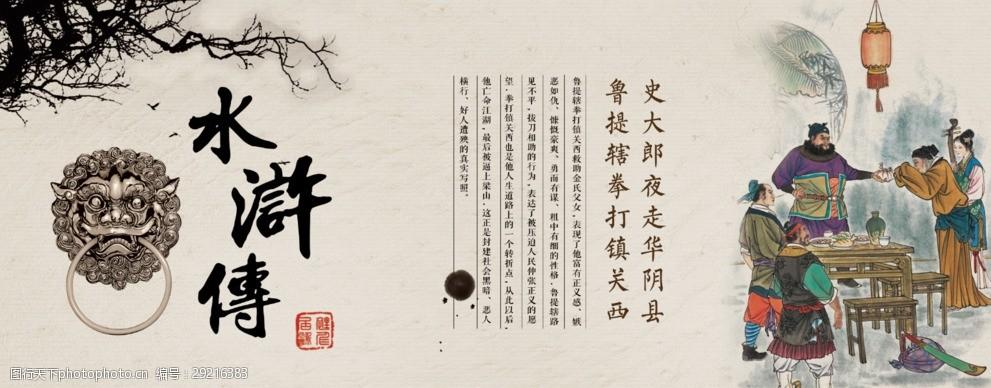 水滸傳
史大郎夜走华阴县
鲁提辖拳打镇关西
鲁提辖拳打镇关西救助金氏父女，表现了他富有正义感、嫉
恶如仇、慷慨豪爽、勇而有谋、粗中有细的性格。鲁提辖路
见不平，拔刀相助的行为，表达了被压迫人民伸张正义的愿
望。拳打镇关西也是他人生道路上的一个转折点，从此以后，
他亡命江湖，最后被逼上梁山，这正是封建社会黑暗、恶人
横行、好人遭殃的真实写照。
图行天下photophoto.cn 编号：29216383